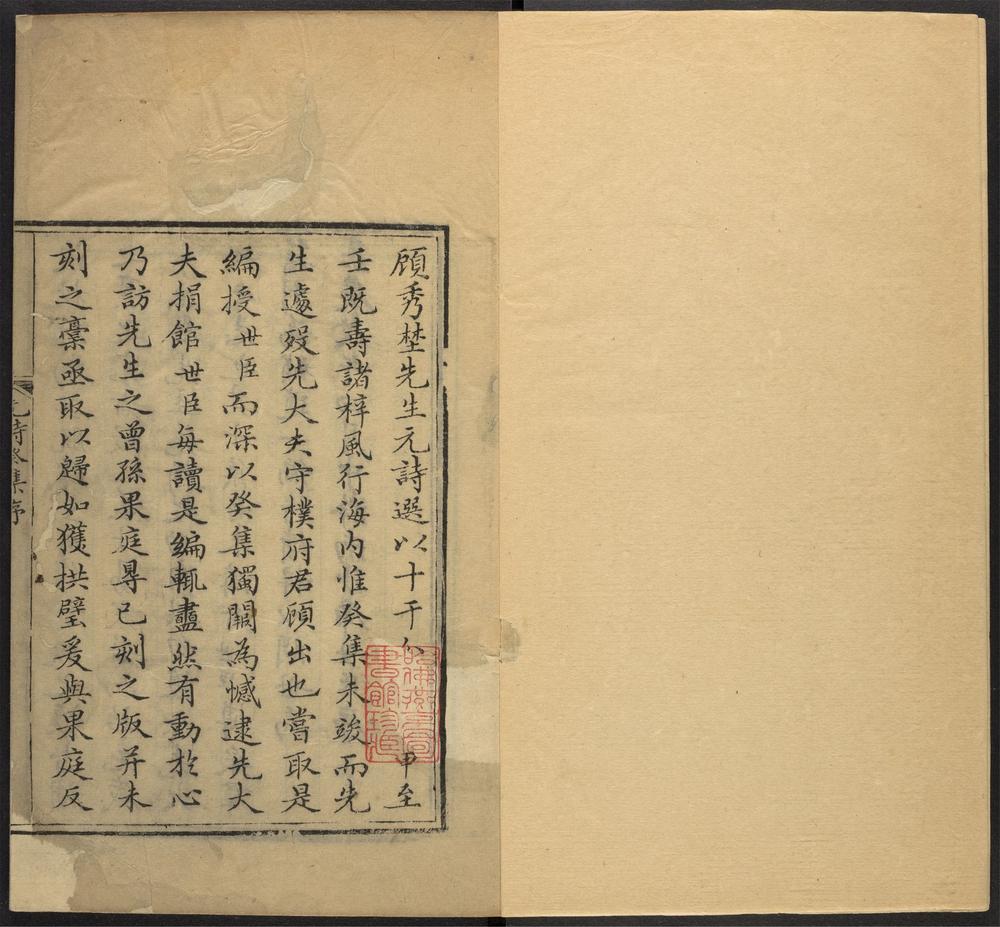 顧秀埜先生元詩選以十干分 甲至
壬既壽諸梓風行海内惟癸集未竣而先
生遽歿先大夫守樸府君顧出也嘗取是
編授世臣而深以癸集獨闕為憾逮先大
夫捐館世臣每讀是編輒衋然有動於心
乃訪先生之曾孫果庭㝷已刻之版并未
刻之藁亟取以歸如獲拱璧爰與果庭反
元詩癸集序
哈佛燕京圖書館珍藏